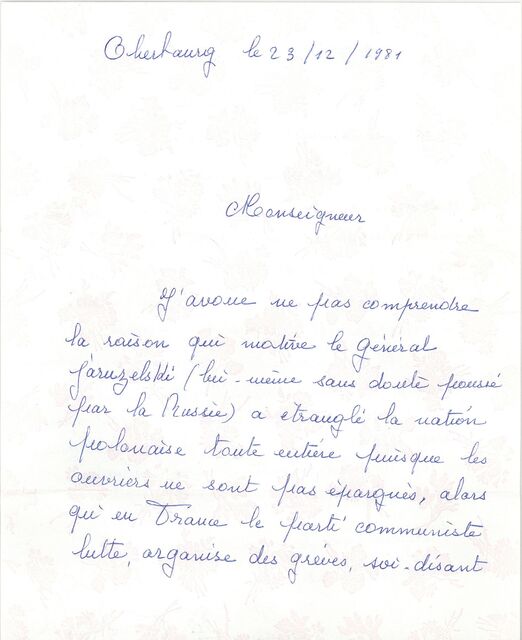 Cherbourg le 23/12/1981
Monseigneur
J'avoue ne pas comprendre
la raison qui motive le général
Jaruzelski (lui-même sans doute poussé
par la Russie) a étranglé la nation
polonaise toute entière puisque les
ouvriers ne sont pas épargnés, alors
qu'en France le parti communiste
lutte, organise des grèves, soi-disant